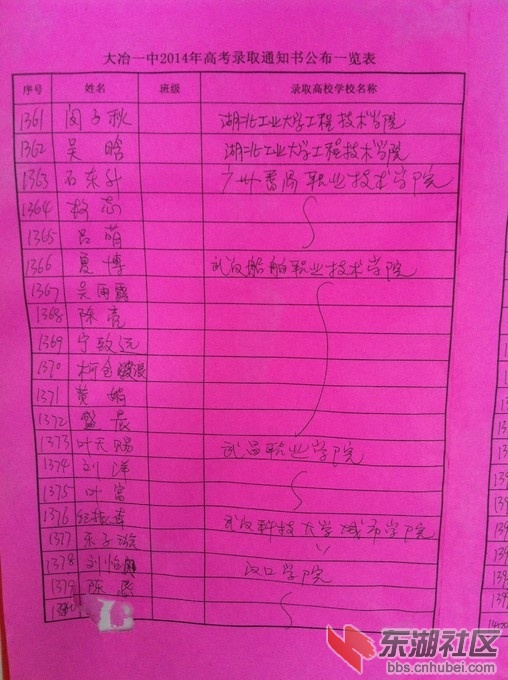 大冶一中2014年高考录取通知书公布一览表
序号 姓名 班级 录取高校学校名称
1361 闵子秋 湖北工业大学工程技术学院
1362 吴晗 湖北工业大学工程技术学院
1363 石东升 广州番禺职业技术学院
1364
1365 吕萌
1366 夏博 武汉船舶职业技术学院
1367 吴雨露
1368 陈亮
1369 宁致远
1370 柯
1371 黄娟
1372 盛晨
1373 叶天赐 武昌职业学院
1374 刘洋
1375 叶富
1376 武汉科技大学城市学院
1377 〃
1378 刘怡 汉口学院
1379 陈
东湖社区
bbs.cnhubei.com